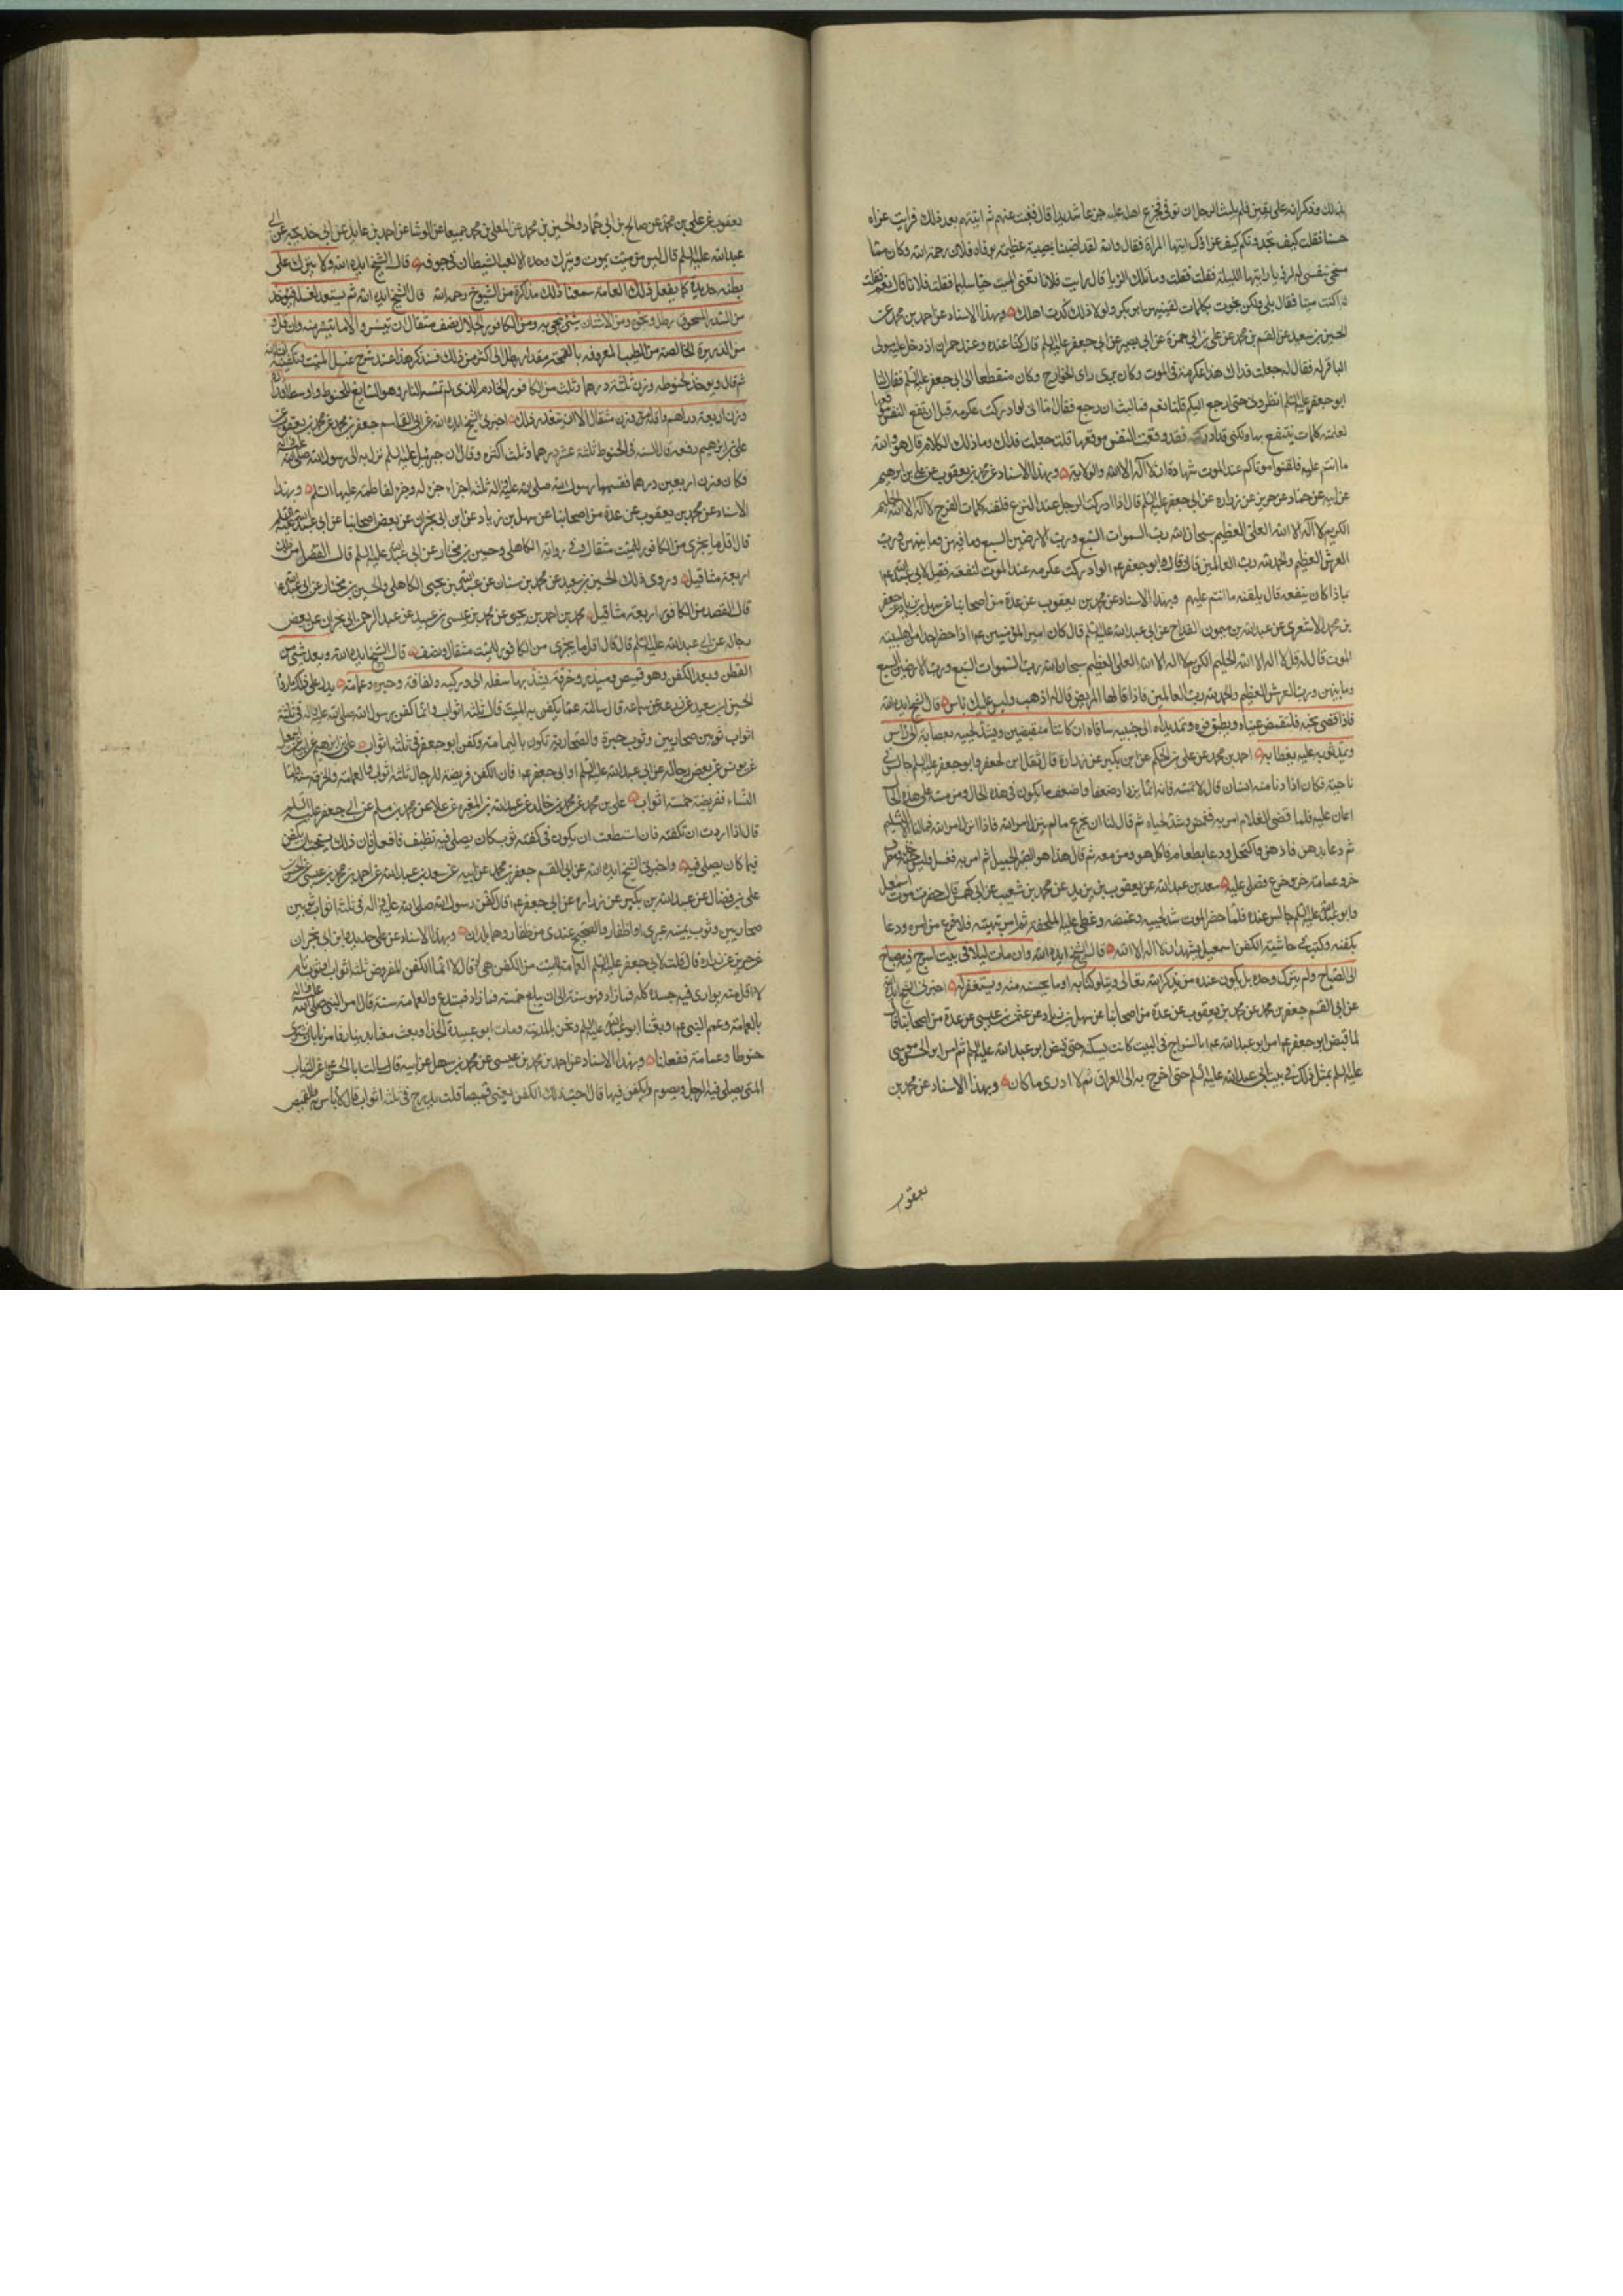 بذلك وذكر انه على يقين فلم يلبث الرجل ان توفى فجزع اهله عليه جزعا شديدا قال فغبت عنهم ثم اتيتهم بعد ذلك فرايت عزاء
حسنا فقلت كيف تجدونكم كيف عزاؤك ايتها المراة فقال والله لقد اصبنا بمصيبة عظيمة بوفاة فلان رحمه الله وكان مما
سخى بنفسى لرؤيا رايتها الليلة فقلت وما تلك الرؤيا قال رايت فلانا تعنى الميت حيا سليما فقلت فلانا قال نعم فقلت
اكنت ميتا فقال بلى ولكن نجوت بكلمات لقنيهن ابو بكر ولولا ذلك كدت اهلك وبهذا الاسناد عن احمد بن محمد عن
الحسين بن سعيد عن القسم بن محمد عن على بن ابى حمزة عن ابى بصير عن ابى جعفر عليه السلم قال كنا عنده وعنده حمران اذ دخل عليه مولى
له فقال له جعلت فداك هذا عكرمة فى الموت وكان يرى راى الخوارج وكان منقطعا الى ابى جعفر عليه السلم فقال لنا
ابو جعفر عليه السلم انظرونى حتى ارجع اليكم قلنا نعم فما لبث ان رجع فقال اما انى لو ادركت عكرمه قبل ان تقع النفس موقعها
لعلمته كلمات ينتفع بها ولكنى قد ادركته وقد وقعت النفس موقعها قلت جعلت فداك وما ذلك الكلام قال هو والله
ما انتم عليه فلقنوا موتاكم عند الموت شهادة ان لا اله الا الله والولاية وبهذا الاسناد عن محمد بن يعقوب عن على بن ابرهيم
عن ابيه عن حماد عن حريز عن زراره عن ابى جعفر عليه السلم قال اذا ادركت الرجل عند النزع فلقنه كلمات الفرج لا اله الا الله الحليم
الكريم لا اله الا الله العلى العظيم سبحان الله رب السموات السبع ورب الارضين السبع وما فيهن وما بينهن ورب
العرش العظيم والحمد لله رب العالمين قال وقال ابو جعفر ع لو ادركت عكرمه عند الموت لنفعته فقيل لابى عبدالله ع
بماذا كان ينفعه قال يلقنه ما انتم عليه وبهذا الاسناد عن محمد بن يعقوب عن عدة من اصحابنا عن سهل بن زياد عن جعفر
بن محمد الاشعرى عن عبدالله بن ميمون القداح عن ابى عبدالله عليه السلم قال كان امير المؤمنين ع اذا حضر احدا من اهل بيته
الموت قال له قل لا اله الا الله الحليم الكريم لا اله الا الله العلى العظيم سبحان الله رب السموات السبع ورب الارضين السبع
وما بينهن ورب العرش العظيم والحمد لله رب العالمين فاذا قالها المريض قال له اذهب وليس عليك باس قال الشيخ ايده الله
فاذا قضى نحبه فلتغمض عيناه ويطبق فوه وتمد يداه الى جنبيه وساقاه ان كانتا منقبضين ويشد لحييه بعصابة الى راس
ويمد ثوبه عليه يغطا به احمد بن محمد عن على بن الحكم عن ابن بكير عن زرارة قال ثقل ابن لجعفر وابو جعفر عليه السلم جالس فى
ناحية فكان اذا دنا منه انسان قال لا تمسه فانه انما يزداد ضعفا واضعف ما يكون فى هذه الحال ومن مسه على هذه الحال
اعان عليه فلما قضى الغلام امر به فغمض وشد لحياه ثم قال لنا ان نجزع ما لم ينزل امر الله فاذا نزل امر الله فما لنا الا التسليم
ثم دعا بدهن فادهن واكتحل ودعا بطعام فاكل هو ومن معه ثم قال هذا هو الصبر الجميل ثم امر به فغسل ولبس جبة خز ومطرف
خز وعمامة خز وخرج فصلى عليه سعد بن عبدالله عن يعقوب بن يزيد عن محمد بن شعيب عن ابى كهمس قال حضرت موت اسمعيل
وابو عبدالله عليه السلم جالس عنده فلما حضره الموت شد لحييه وغمضه وغطى عليه الملحفة ثم امر بتهيئته فلما فرغ من امره ودعا
بكفنه وكتب فى حاشية الكفن اسمعيل يشهد ان لا اله الا الله قال الشيخ ايده الله وان مات ليلا فى بيت اسرج فيه مصباح
الى الصباح ولم يترك وحده بل يكون عنده من يذكر الله تعالى ويتلو كتابه او ما يحسنه منه ويستغفر له اخبرنى الشيخ ايده الله
عن ابى القسم جعفر بن محمد عن محمد بن يعقوب عن عدة من اصحابنا عن سهل بن زياد عن عثمن بن عيسى عن عدة من اصحابنا قال
لما قبض ابو جعفر ع امر ابو عبدالله ع بالسراج فى البيت كانت يسكنه حتى قبض ابو عبدالله عليه السلم ثم امر ابو الحسن موسى
عليه السلم بمثل ذلك فى بيت ابى عبدالله عليه السلم حتى اخرج به الى العراق ثم لا ادرى ما كان وبهذا الاسناد عن محمد بن
يعقوب
يعقوب عن على بن محمد عن صالح بن ابى حماد والحسين بن محمد عن المعلى بن محمد جميعا عن الوشا عن احمد بن عايذ عن ابى خديجه عن ابى
عبدالله عليه السلم قال ليس من ميت يموت ويترك وحده الا لعب الشيطان فى جوفه قال الشيخ ايده الله ولا يترك على
بطنه حديدة كما يفعل ذلك العامة سمعنا ذلك مذاكرة من الشيوخ رحمهم الله قال الشيخ ايده الله ثم يستعد لغسله فيؤخذ
من السدر المسحوق رطل ونحوه ومن الاشنان شئ نجى به ومن الكافور الجلال نصف مثقال ان تيسر والا ما تيسر منه وان قل و
من الذريرة الخالصة من الطيب المعروفه بالقمحة مقدار رطل الى اكثر من ذلك فسنذكر هذا عند شرح غسل الميت وتكفينه ان شاء الله
ثم قال ويوخذ لحنوطه وزن ثلثة عشر درهما وثلث من الكافور الخام الذى لم تمسه النار وهو السايغ للحنوط واوسطه وزن
وزن اربعة دراهم واقله وزن مثقال الا ان يتعذر ذلك اخبرنى الشيخ ايده الله عن ابى القاسم جعفر بن محمد عن محمد بن يعقوب عن
على بن ابرهيم رفعه قال السنه فى الحنوط ثلثة عشر درهما وثلث اكثره وقال ان جبرئيل عليه السلم نزل به الى رسول الله صلى الله عليه واله
فكان وزنه اربعين درهما فقسمها رسول الله صلى الله عليه واله ثلثه اجزاء جزء له وجزء لفاطمه عليها السلم وبهذا
الاسناد عن محمد بن يعقوب عن عدة من اصحابنا عن سهل بن زياد عن ابن ابى نجران عن بعض اصحابنا عن ابى عبدالله عليه السلم
قال اقل ما يجزى من الكافور للميت مثقال وفى رواية الكاهلى وحسين بن مختار عن ابى عبدالله عليه السلم قال القصد من ذلك
اربعة مثاقيل وروى ذلك الحسين بن سعيد عن محمد بن سنان عن عبدالله بن يحيى الكاهلى والحسين بن مختار عن ابى عبدالله ع
قال القصد من الكافور اربعة مثاقيل محمد بن احمد بن يحيى عن محمد بن عيسى بن عبيد عن عبد الرحمن ابى نجران عن بعض
رجاله عن ابى عبدالله عليه السلم قال قال اقل ما يجزى من الكافور للميت مثقال ونصف قال الشيخ ايده الله ويعد شئ من
القطن ويعد الكفن وهو قميص وميزر وخرقة يشد بها سفله الى وركيه ولفافة وحبره وعمامة يدل على ذلك ما رواه
الحسين بن سعيد عن زرعه عن سماعه قال سالته عما يكفن به الميت قال ثلثه اثواب وانما كفن رسول الله صلى الله عليه واله فى ثلثة
اثواب ثوبين صحاريين وثوب حبرة والصحارية تكون باليمامة وكفن ابو جعفر فى ثلثه اثواب على بن ابرهيم عن ابيه
عن يونس عن بعض رجاله عن ابى عبدالله عليه السلم او ابى جعفر ع قال الكفن فريضة للرجال ثلثه اثواب والعمامة والخرقه سنة واما
النساء ففريضة خمسة اثواب على بن محمد عن محمد بن خالد عن عبدالله بن المغيره عن علا عن محمد بن مسلم عن ابى جعفر عليه السلم
قال اذا اردت ان تكفنه فان استطعت ان يكون فى كفنه ثوب كان يصلى فيه نظيف فافعل فان ذلك يستحب ان يكفن
فيما كان يصلى فيه واخبرنى الشيخ ايده الله عن ابى القسم جعفر بن محمد عن ابيه عن سعد بن عبدالله عن احمد بن محمد بن عيسى عن الحسن
على بن فضال عن عبدالله بن بكير عن زراره عن ابى جعفر ع قال كفن رسول الله صلى الله عليه واله فى ثلثة اثواب ثوبين
صحاريين وثوب يمنه عبرى او اظفار والصحيح عندى من ظفار وهما بلدان وبهذا الاسناد عن على بن حديد وابن ابى نجران
عن حريز عن زراره قال قلت لابى جعفر عليه السلم العمامة للميت من الكفن هى قال لا انما الكفن المفروض ثلثه اثواب او ثوب تام
لا اقل منه يوارى فيه جسده كله فما زاد فهو سنة الى ان يبلغ خمسه فما زاد فمبتدع والعمامة سنة قال امر النبى صلى الله عليه واله
بالعمامة وعمم النبى ع وبعثنا ابو عبدالله عليه السلم ونحن بالمدينه ومات ابو عبيدة الحذا وبعث معنا بدينار فامرنا بان نشترى
حنوطا وعمامة ففعلنا وبهذا الاسناد عن احمد بن محمد بن عيسى عن محمد بن سهل عن ابيه قال سالت ابا الحسن ع عن الثياب
التى يصلى فيها الرجل ويصوم ايكفن فيها قال احب ذلك الكفن يعنى قميصا قلت يدرج فى ثلثه اثواب قال لا باس به والقميص